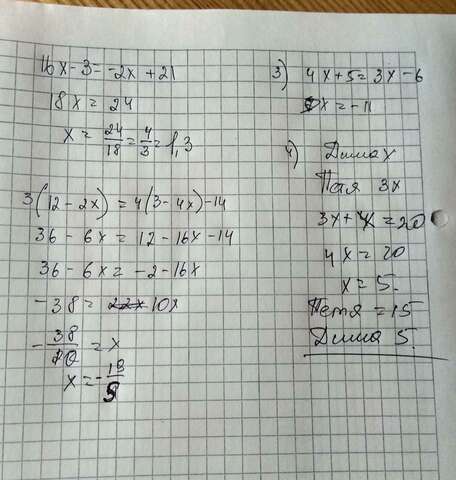 16x - 3 = -2x + 21
18x = 24
x = 24/18 = 4/3 = 1,3
3(12 - 2x) = 4(3 - 4x) - 14
36 - 6x = 12 - 16x - 14
36 - 6x = -2 - 16x
-38 = 10x
-38/10 = x
x = -19/5
3) 4x + 5 = 3x - 6
x = -11
4) Дима x
3x
3x + x = 20
4x = 20
x = 5.
Петя = 15
Дима 5.